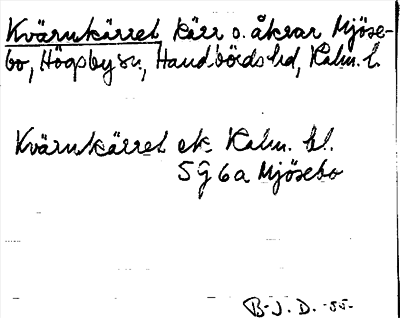 Kvärnkärret kärr o. åkrar Mjöse-
bo, Högsby sn, Handbörds hd, Kalm. l.
Kvärnkärret ek. Kalm. bl.
5 G 6 a Mjösebo
B-J. D. -55-